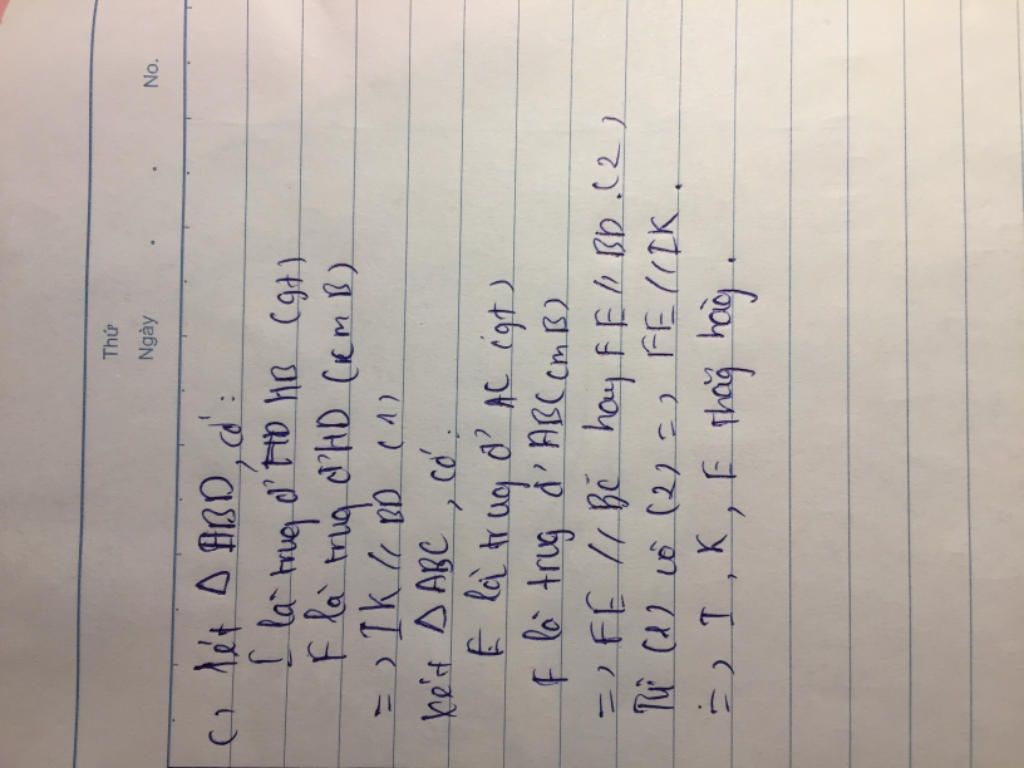 Thứ
Ngày . . No.
c, Xét Δ ABD, có:
I là trug đ' HB (gt)
F là trug đ' HD (cm B)
=, IK // BD (1)
Xét Δ ABC, có:
E là trung đ' AC (gt)
F là trug đ' AB (cm B)
=, FE // BC hay FE // BD. (2)
Từ (1) và (2) =, FE // IK.
=, I, K, E thẳg hàg.